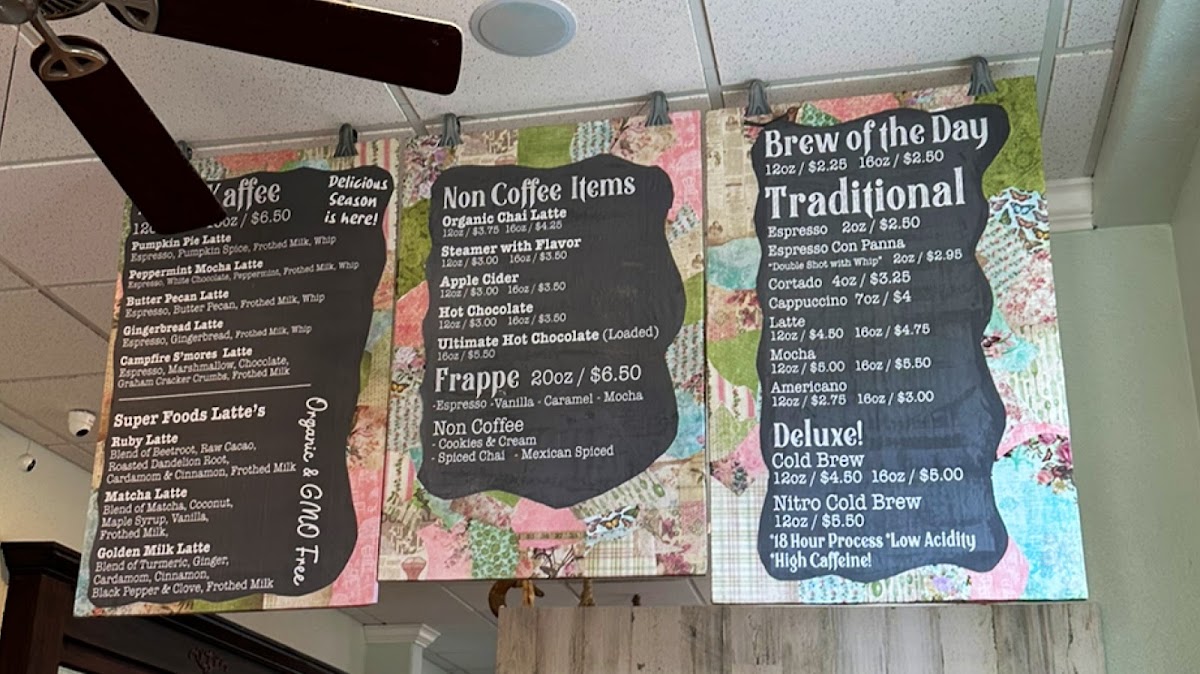 affee
Delicious
Season
is here!
12 oz / $6.50
Pumpkin Pie Latte
Espresso, Pumpkin Spice, Frothed Milk, Whip
Peppermint Mocha Latte
Espresso, White Chocolate, Peppermint, Frothed Milk, Whip
Butter Pecan Latte
Espresso, Butter Pecan, Frothed Milk, Whip
Gingerbread Latte
Espresso, Gingerbread, Frothed Milk, Whip
Campfire S'mores Latte
Espresso, Marshmallow, Chocolate,
Graham Cracker Crumbs, Frothed Milk
Super Foods Latte's
Ruby Latte
Blend of Beetroot, Raw Cacao,
Roasted Dandelion Root,
Cardamom & Cinnamon, Frothed Milk
Matcha Latte
Blend of Matcha, Coconut,
Maple Syrup, Vanilla,
Frothed Milk,
Golden Milk Latte
Blend of Turmeric, Ginger,
Cardamom, Cinnamon,
Black Pepper & Clove, Frothed Milk
Organic & GMO Free
Non Coffee Items
Organic Chai Latte
12oz / $3.75 16oz / $4.25
Steamer with Flavor
12oz / $3.00 16oz / $3.50
Apple Cider
12oz / $3.00 16oz / $3.50
Hot Chocolate
12oz / $3.00 16oz / $3.50
Ultimate Hot Chocolate (Loaded)
16oz / $5.50
Frappe 20oz / $6.50
-Espresso -Vanilla - Caramel - Mocha
Non Coffee
- Cookies & Cream
- Spiced Chai - Mexican Spiced
Brew of the Day
12oz / $2.25 16oz / $2.50
Traditional
Espresso 2oz / $2.50
Espresso Con Panna
"Double Shot with Whip" 2oz / $2.95
Cortado 4oz / $3.25
Cappuccino 7oz / $4
Latte
12oz / $4.50 16oz / $4.75
Mocha
12oz / $5.00 16oz / $5.50
Americano
12oz / $2.75 16oz / $3.00
Deluxe!
Cold Brew
12oz / $4.50 16oz / $5.00
Nitro Cold Brew
12oz / $5.50
*18 Hour Process *Low Acidity
*High Caffeine!